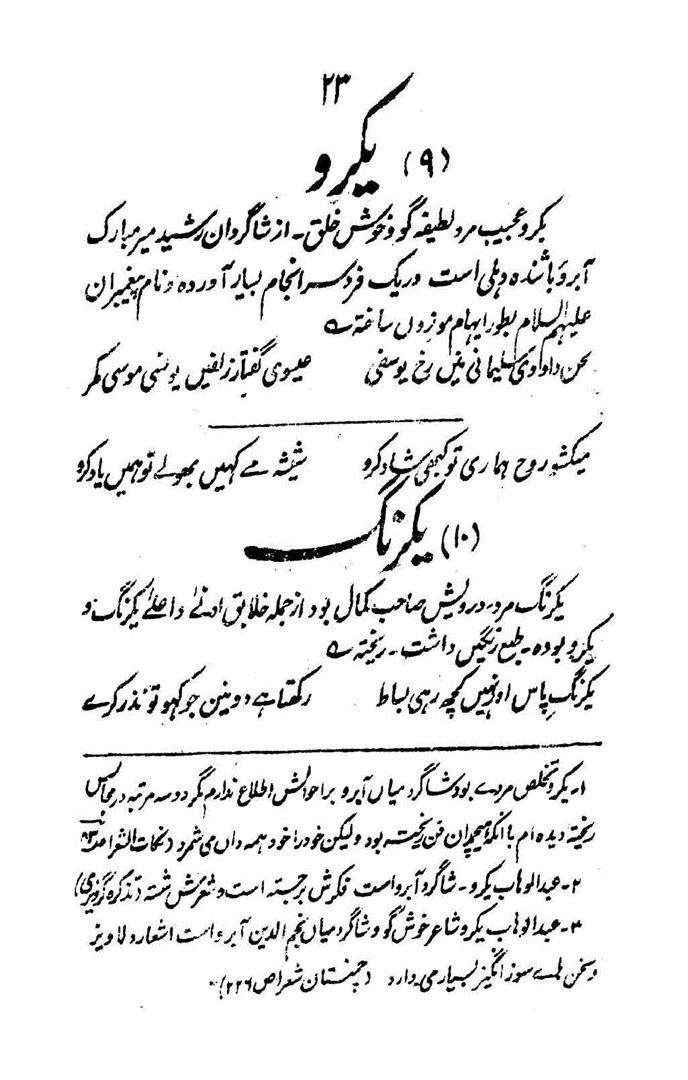 ۲۳
(۹) یکرو
یکرو عجیب مرد لطیفہ گو و خوش خلق۔ از شاگردان رشید میر مبارک
آبرو باشندہ دہلی است در یک فرد سر انجام بسیار آوردہ و نام پیغمبران
علیہم السلام بطور ایہام موزوں ساختہ ؎
لحن داؤدی سلیمانی نین رخ یوسفی عیسوی گفتار زلفیں یونسی موسی کمر
میکشو روح ہماری تو کبھی شاد کرو شیشہ مے کہیں بھولے تو ہمیں یاد کرو
(۱۰) یکرنگ
یکرنگ مرد درویش صاحب کمال بود از جملہ خلایق ادنےٰ و اعلےٰ یکرنگ و
یکرو بودہ۔ طبع رنگیں داشت۔ ریختہ ؎
یکرنگ پاس اور نہیں کچھ رہی بساط رکھتا ہے دو نین جو کہو تو نذر کرے
۱۔ یکرو تخلص مردے بود شاگرد میاں آبرو بر احوالش اطلاع ندارم مگر دو سہ مرتبہ در مجالس
ریختہ دیدہ ام باآنکہ ہیچمدان فن ریختہ بود ولیکن خود را خود ہمہ داں می شمرد (نکات الشعرا
۲۔ عبدالوہاب یکرو۔ شاگرد آبرو است فکرش برجستہ است و شعرش شستہ (تذکرہ گردیزی)
۳۔ عبدالوہاب یکرو شاعر خوش گو و شاگرد میاں نجم الدین آبرو است اشعار دلاویز
و سخن ہائے سوز انگیز بسیار می دارد (چمنستان شعرا ص ۲۲۶)